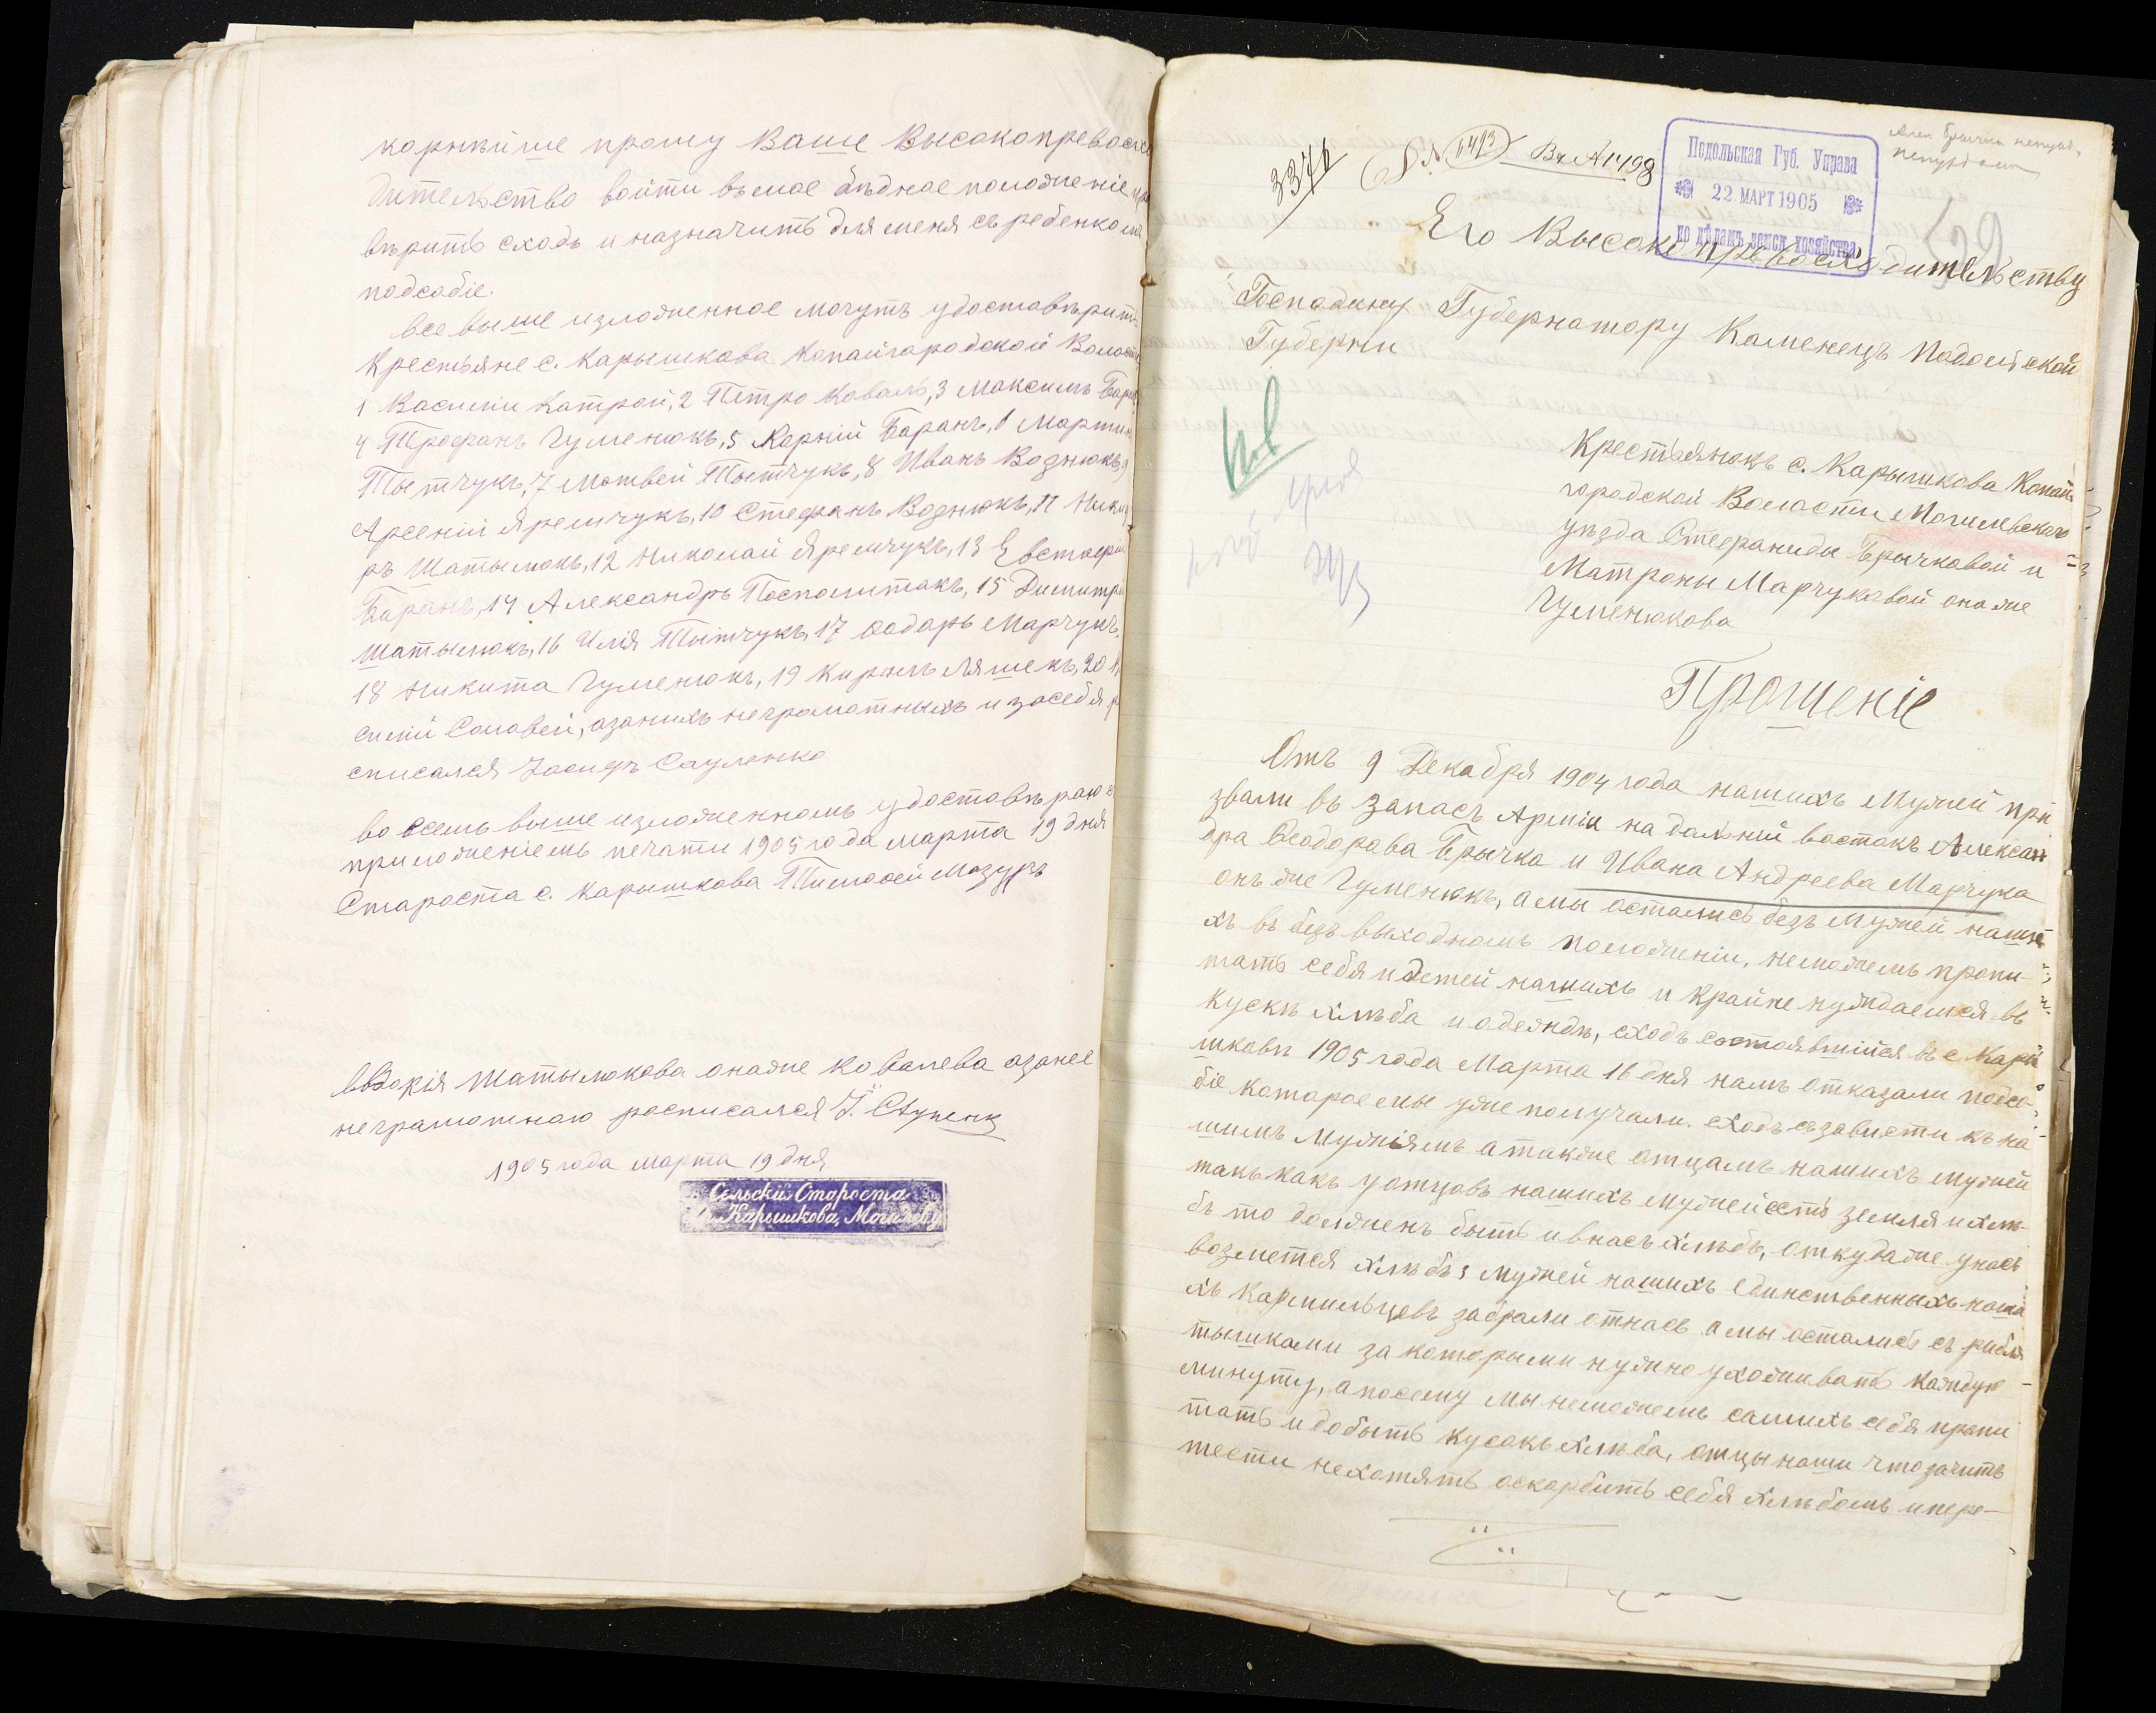 корнѣйше прошу Ваше Высокопревосхо
дительство войти въ мое бѣдное положеніе
вѣрить сходъ и назначить для меня съ ребенкомъ
подсобіе.
все выше изложенное могутъ удоставѣрить
Крестьяне с. Карышкова Копайгородской Волости
1 Василій Катрой, 2 Петро Коваль, 3 Максимъ Баран
4 Трофанъ Гуменюкъ, 5 Карній Баранъ, 6 Мартин
Тытчукъ, 7 Матвей Тытчукъ, 8 Иванъ Вознюкъ, 9
Арсеній Яремчукъ, 10 Стефанъ Вознюкъ, 11 Ники
ръ Шатылюкъ, 12 Николай Яремчукъ, 13 Евстафій
Баранъ, 14 Александръ Посполитакъ, 15 Димитрій
Шатылюкъ, 16 Илія Тытчукъ, 17 Фадаръ Марчукъ,
18 Никита Гуменюкъ, 19 Кирылъ Ляшекъ, 20
силій Соловей, азанихъ неграмотныхъ и засебя р
списался Іосифъ Сауленко
во всемъ выше изложенномъ удоставѣраю с
приложеніемъ печати 1905 года марта 19 дня
Староста с. Карышкова Тимофей Мазуръ
Евдокія Шатылюкова онаже Ковалева азанее
неграмотнаю росписался І.
1905 года марта 19 дня
Сельскій Староста
с. Карышкова, Могилеву
3376
№ 6493 Вх А 1498
Подольская Губ. Управа
22 МАРТ 1905
по дѣламъ земск. хозяйства
59
Его Высокопревосходительству
Господину Губернатору Каменецъ Подольской
Губерніи
Крестьянокъ с. Карышкова Копай
городской Волости Могилевскаго
уѣзда Стефаниды Брычковой и
Матроны Марчуковой онаже
Гуменюкова
Прошеніе
Отъ 9 Декабря 1904 года нашихъ Мужей при
звали въ запасъ Арміи на дальній востокъ Алексан
дра Феодорава Брычка и Ивана Андреева Марчука
онъ же Гуменюкъ, а мы остались безъ мужей наши
хъ въ безъ выходномъ положеніи, неможемъ пропи
тать себя и детей нашихъ и крайне нуждаемся въ
кускѣ хлѣба и одеждѣ, сходъ состоявшійся въ с Кары
шковѣ 1905 года Марта 16 дня намъ отказали подсо-
біе которое мы уже получали. сходъ съ зависти къ на
шимъ мужіямъ а также отцамъ нашихъ мужей
такъ какъ у отцовъ нашихъ мужей есть земля и хлѣ-
бъ то долженъ быть и внасъ хлѣбъ, откуда же унасъ
возметея хлѣбъ, мужей нашихъ единственныхъ наши
хъ кармильцевъ забрали отнасъ а мы остались съ ребя
тышками за которыми нужно ухаживать каждую
минуту, а посему мы неможемъ самихъ себя пропи
тать и добыть кусакъ хлѣба, отцы наши что зачить
тести нехотятъ аскарбить себя хлѣбомъ и пере-